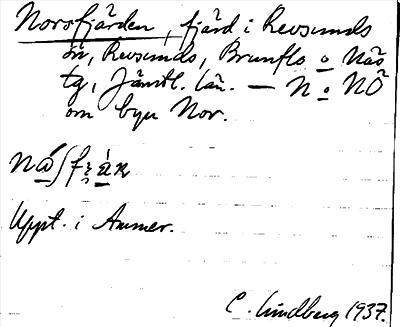 Norsfjärden, fjärd i Revsunds
sn, Revsunds, Brunflo o. Näs
tg, Jämtl. län. — N o. NÖ
om byn Nor.
Uppt. i Ammer.
C. Lindberg 1937.